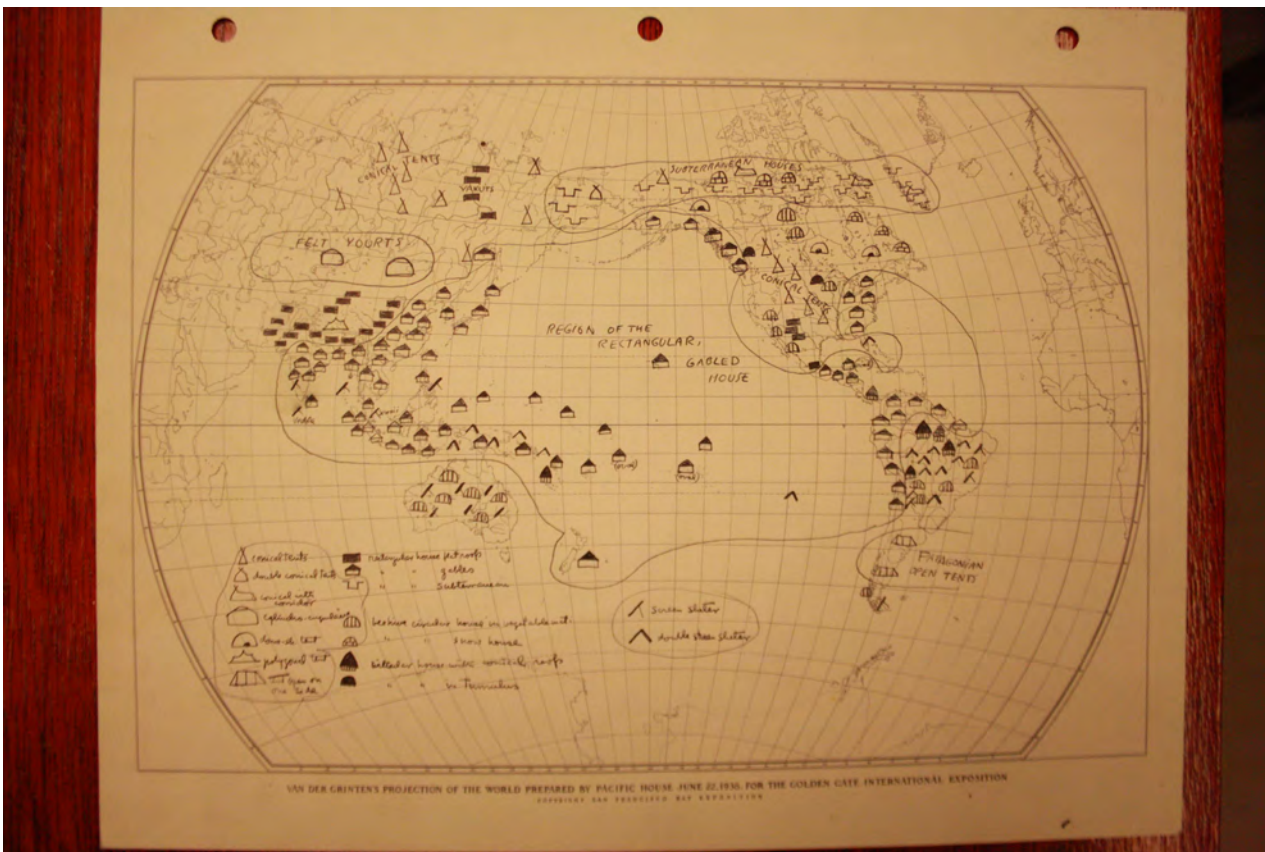 CONICAL TENTS
YAKUTS
SUBTERRANEAN HOUSES
FELT YOURTS
CONICAL TENTS
REGION OF THE
RECTANGULAR,
GABLED
HOUSE
PATAGONIAN
OPEN TENTS
conical tents
double conical tents
conical with
corridor
dome-sh. tent
polygonal tent
Tent open on
one side
rectangular house flat roofs
" " gables
" " subterranean
beehive circular house in vegetable mat.
" " snow house
circular house with conical roofs
" " in Tumulus
screen shelter
double screen shelter
VAN DER GRINTEN'S PROJECTION OF THE WORLD PREPARED BY PACIFIC HOUSE JUNE 22, 1938, FOR THE GOLDEN GATE INTERNATIONAL EXPOSITION
COPYRIGHT SAN FRANCISCO BAY EXPOSITION